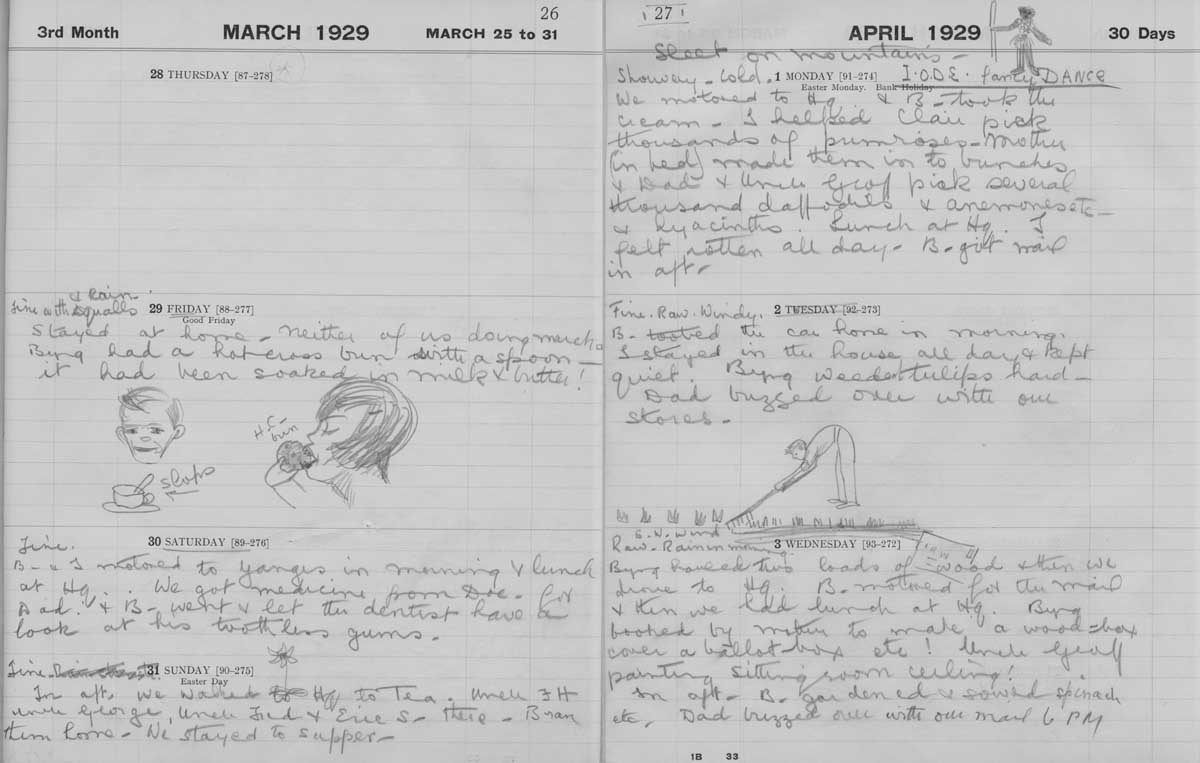 26
3rd Month MARCH 1929 MARCH 25 to 31
28 THURSDAY [87-278]
& Rain.
Fine with squalls 29 FRIDAY [88-277]
Good Friday
Stayed at home - neither of us doing much.
Byng had a hot cross bun with a spoon -
it had been soaked in milk & butter!
H.C. bun
slops
Fine. 30 SATURDAY [89-276]
B - & I motored to Ganges in morning & lunch
at Hq. We got medicine from Doc. for
Dad. & B - went & let the dentist have a
look at his toothless gums.
Fine. 31 SUNDAY [90-275]
Easter Day
In aft. we walked to Hq to Tea. Uncle
Uncle George, Uncle Fred & Eric S - there -
them home - We stayed to supper -
27
APRIL 1929 30 Days
Sleet on mountains -
Showery - Cold. 1 MONDAY [91-274] I.O.D.E. fancy DANCE
Easter Monday. Bank Holiday
We motored to Hq. & B - took the
cream - I helped Clair pick
thousands of primroses - Mother
(in bed) made them in to bunches
& Dad & Uncle Geof pick several
thousand daffodils & anemones etc -
& hyacinths. Lunch at Hq. I
felt rotten all day - B - got mail
in aft -
Fine. Raw. Windy. 2 TUESDAY [92-273]
B - the car home in morning.
I stayed in the house all day & kept
quiet. Byng weeded tulips hard -
Dad buzzed over with our
stores -
S. W. Wind
Raw - Rain in morning 3 WEDNESDAY [93-272]
Byng hauled two loads of wood & then we
drove to Hq. B - motored for the mail
& then we had lunch at Hq. Byng
booked by to make a wood = box
cover a ballot box etc! Uncle Geoff
painting sitting room ceiling!
In aft - B - gardened & sowed spinach
etc. Dad buzzed over with our mail 6 PM
1B 33